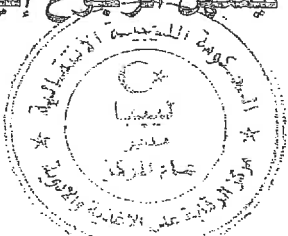 الحكومة الليبية الانتقالية
ليبيا
مدير
عام المركز
مركز الرقابة على الأغذية والأدوية